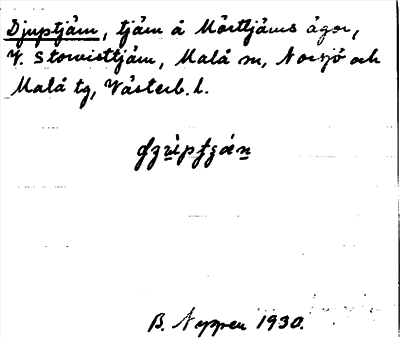 Djuptjärn, tjärn å Mörttjärns ägor,
V. Storvisttjärn, Malå sn, Norsjö och
Malå tg, Västerb. l.
B. Nyppen 1930.